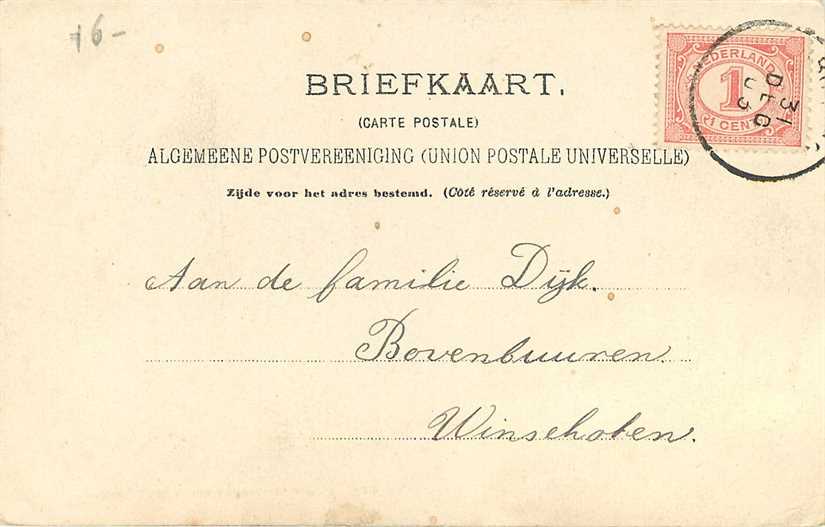 16-
BRIEFKAART.
(CARTE POSTALE)
ALGEMEENE POSTVEREENIGING (UNION POSTALE UNIVERSELLE)
Zijde voor het adres bestemd. (Côté réservé à l'adresse.)
NEDERLAND
1
1 CENT
31
DEC
03
Aan de familie Dijk.
Bovenbuuren.
Winschoten.